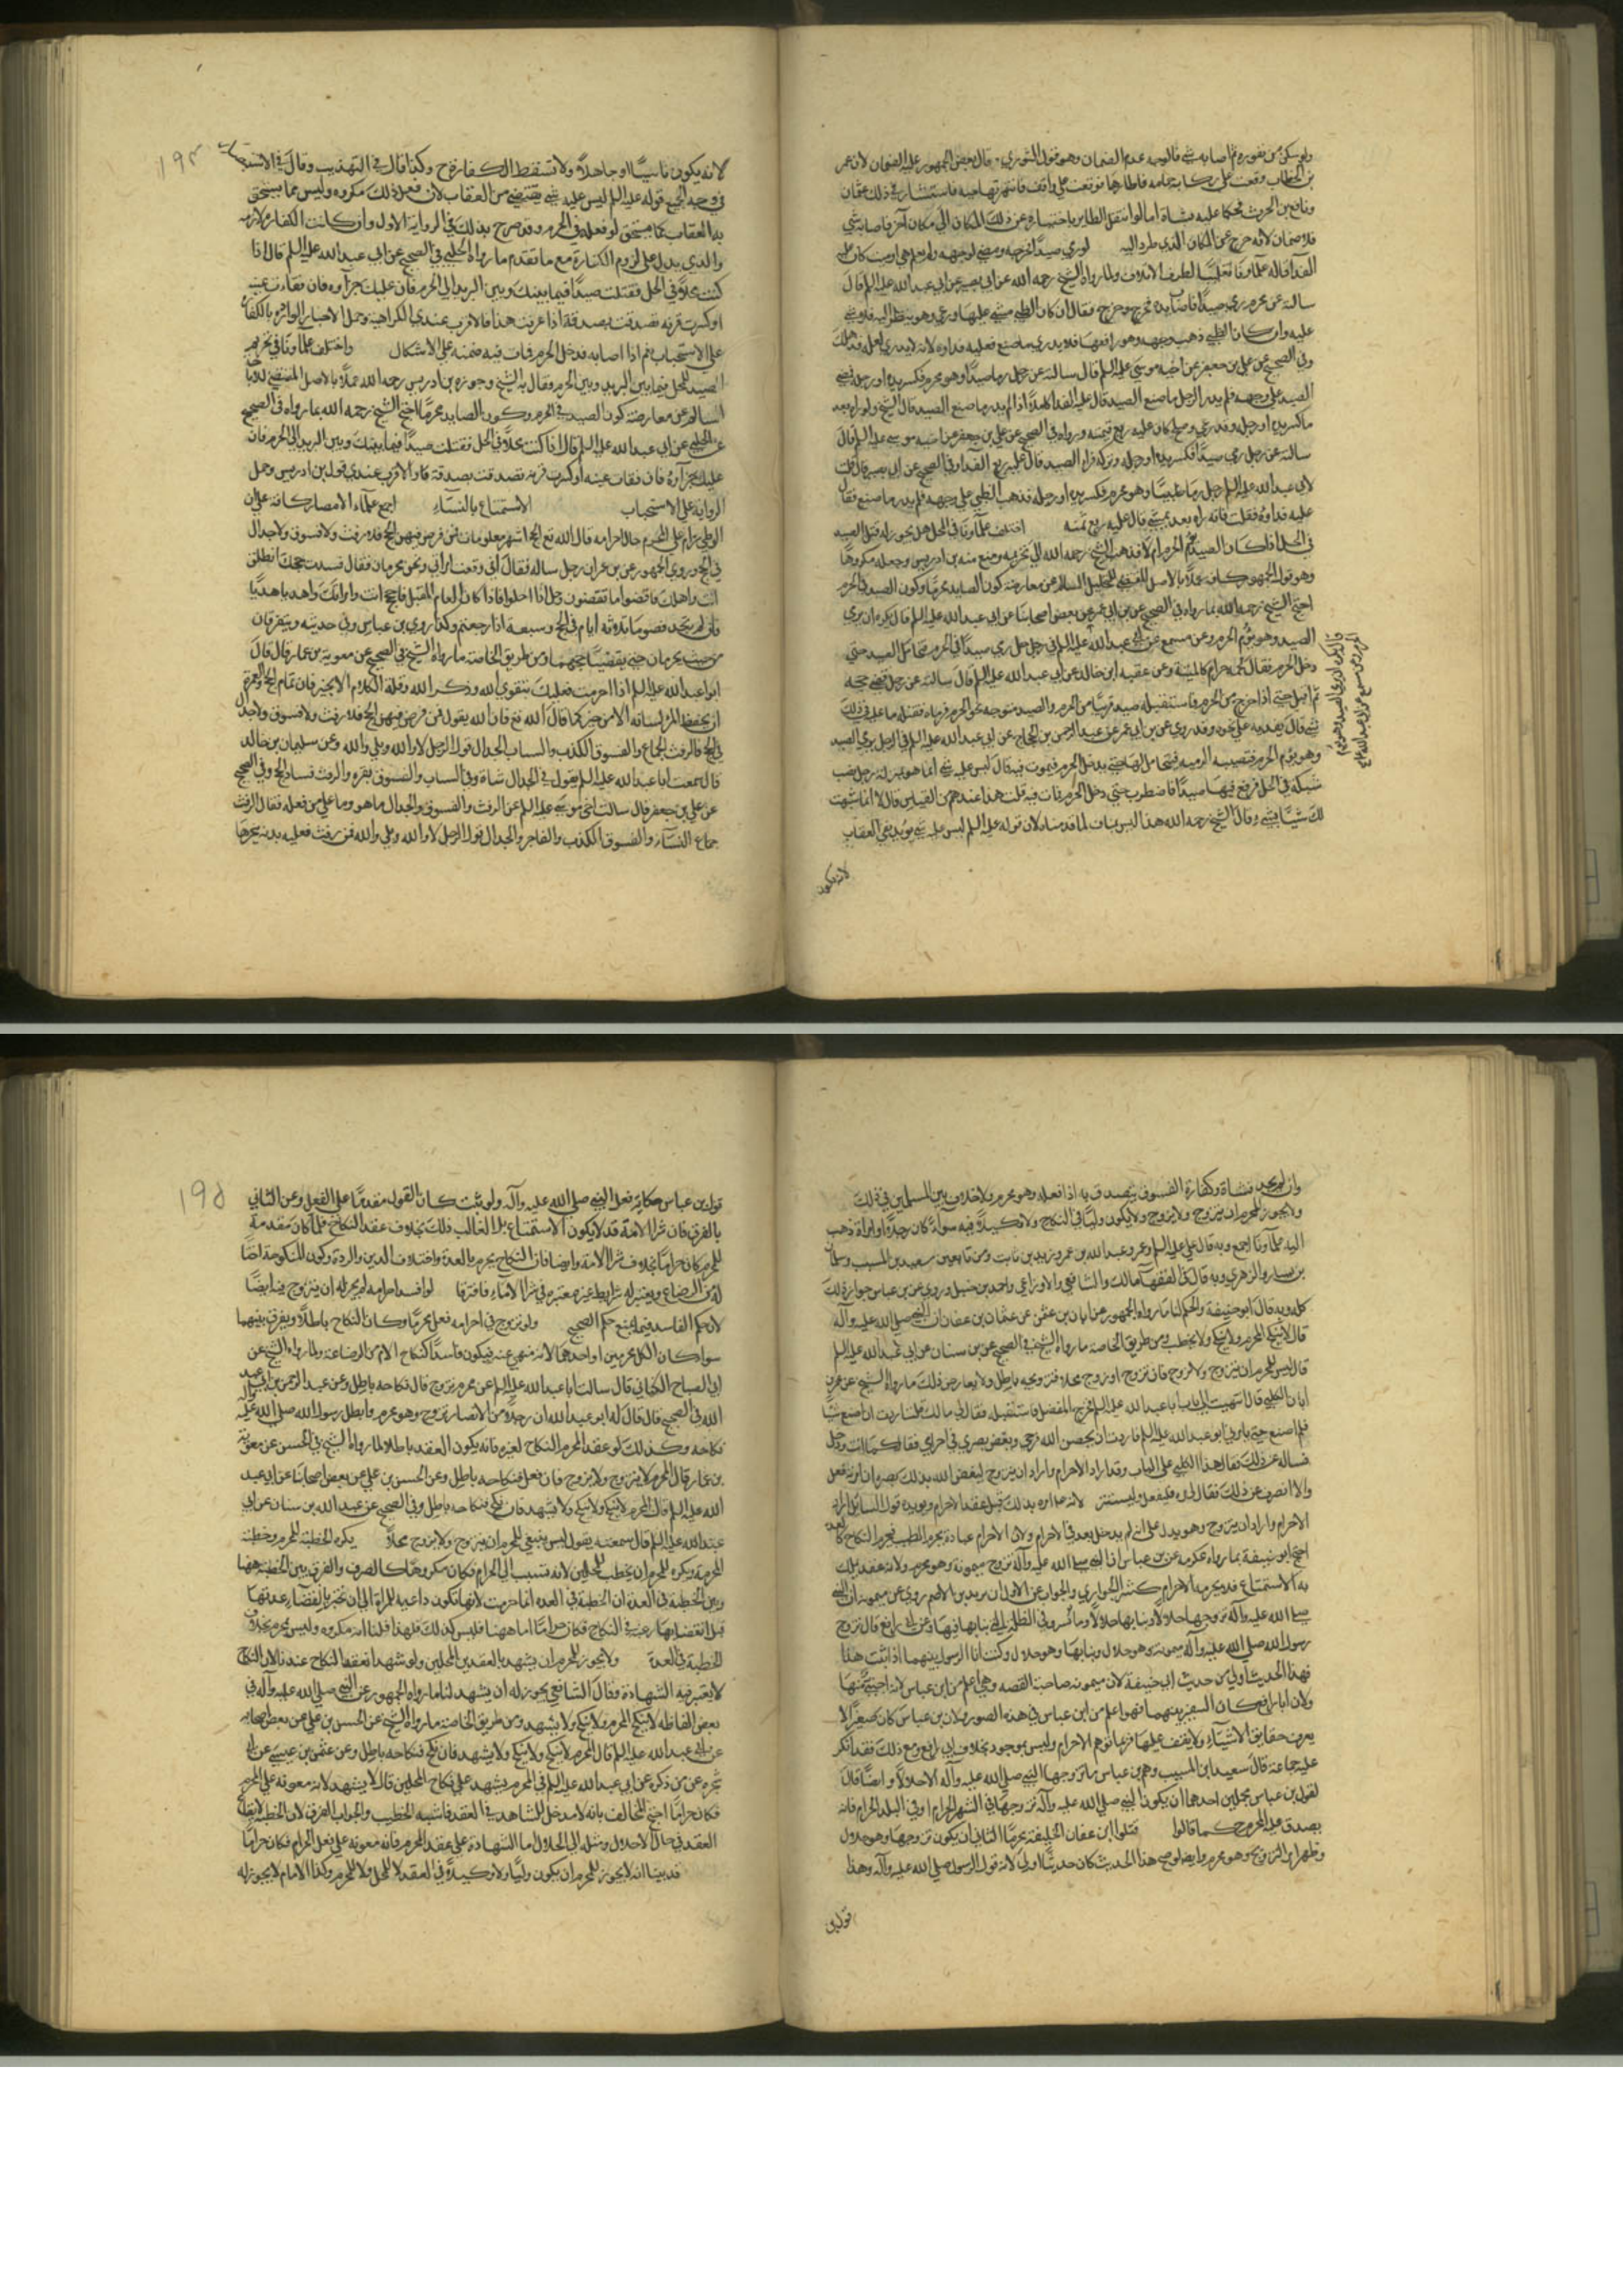 ولو سكن من نفوره ثم اصابه شي فالوجه عدم الضمان وهو قول الثوري وقال بعض الجمهور عليه الضمان لان عمر
بن الخطاب وقعت على حمامة فاطارها فوقعت على واقف فانتهزتها حية فاستشار في ذلك عثمان
ونافع بن الحرث فحكما عليه بشاة اما لو انتقل الطاير باختياره عن ذلك المكان الى مكان آخر فاصابه شي
فلا ضمان لانه خرج عن المكان الذي طرد اليه لو رمى صيدا فجرحه ومضى لوجهه ولم يعلم حي او ميت كان عليه
الفدا قاله علماؤنا تغليبا لطرف الاتلاف ولما رواه الشيخ رحمه الله عن ابي بصير عن ابي عبد الله عليه السلم قال
سالته عن محرم رمى صيدا فاصاب يده فجرح وعرج فقال ان كان الظبي مشى عليها ورعى وهو ينظر اليه فلا شي
عليه وان كان الظبي ذهب لوجهه وهو رافعها فلا يدري ما صنع فعليه فداوه لانه لا يدري لعله قد هلك
وفي الصحيح عن علي بن جعفر عن اخيه موسى عليه السلم قال سالته عن رجل رمى صيدا وهو محرم فكسر يده او رجله فمضى
الصيد على وجهه فلم يدر الرجل ما صنع الصيد قال عليه الفدا كاملا اذا لم يدر ما صنع الصيد قال الشيخ ولو راه بعد
ما كسر يده او رجله وقد رعى وصلح كان عليه ربع قيمته ورواه في الصحيح عن علي بن جعفر عن اخيه موسى عليه السلم قال
سالته عن رجل رمى صيدا فكسر يده او رجله وتركه فرعى الصيد قال عليه ربع الفدا وفي الصحيح عن ابي بصير قال قلت
لابي عبد الله عليه السلم رجل رمى ظبيا وهو محرم فكسر يده او رجله فذهب الظبي على وجهه فلم يدر ما صنع فقال
عليه فداوه قلت فانه راه بعد يمشي قال عليه ربع ثمنه اختلف علماؤنا في المحل هل يجوز له قتل الصيد
في الحل اذا كان الصيد يؤم الحرم ام لا فذهب الشيخ رحمه الله الى تحريمه ومنع منه بن ادريس وجعله مكروها
وهو قول الجمهور كافة عملا بالاصل المقتضي للتحليل السالم عن معارضة كون الصايد محرما وكون الصيد في الحرم
احتج الشيخ رحمه الله بما رواه في الصحيح عن بن ابي عمير عن بعض اصحابنا عن ابي عبد الله عليه السلم قال كان يكره ان يرمي
الصيد وهو يؤم الحرم وعن مسمع عن ابي عبد الله عليه السلم في رجل حل رمى صيدا في الحرم فتحامل الصيد حتى
دخل الحرم فقال لحمه حرام كالميتة وعن عقبة بن خالد عن ابي عبد الله عليه السلم قال سالته عن رجل قضى حجه
ثم اقبل حتى اذا خرج من الحرم فاستقبله صيد قريبا من الحرم والصيد متوجه نحو الحرم فرماه فقتله ما عليه في ذلك
شي قال يفديه على نحوه وقد روى عن بن ابي عمير عن عبد الرحمن بن الحجاج عن ابي عبد الله عليه السلم في الرجل يرمي الصيد
وهو يؤم الحرم فتصيبه الرمية فيتحامل بها حتى يدخل الحرم فيموت فيه قال ليس عليه شي انما هو بمنزلة رجل نصب
شبكة في الحل فوقع فيها صيدا فاضطرب حتى دخل الحرم فمات فيه قلت هذا عندهم من القياس قال لا انما شبهت
لك شيئا بشي وقال الشيخ رحمه الله هذا ليس بمناف لما قدمناه لان قوله عليه السلم ليس عليه شي يؤيد نفي العقاب
لانه يكون
لانه يكون ناسيا او جاهلا ولا تسقط الكفارة ح وكذا قال في التهذيب وقال في الاستبصار
في وجه الجمع قوله عليه السلم ليس عليه شي يقتضي من العقاب لان فعل ذلك مكروه وليس مما يستحق
به العقاب كما يستحق لو فعله في الحرم وقد صرح بذلك في الرواية الاول وان كانت الكفارة لازمه
والذي يدل على لزوم الكفارة مع ما تقدم ما رواه الحلبي في الصحيح عن ابي عبد الله عليه السلم قال اذا
كنت محلا في الحل فقتلت صيدا فيما بينك وبين البريد الى الحرم فان عليك جزآوه فان فقات عينه
او كسرت قرنه تصدقت بصدقة اذا عرفت هذا فالاقرب عندي الكراهية وحمل الاخبار الواردة بالكفارة
على الاستحباب نعم اذا اصابه فدخل الحرم فمات فيه ضمنه على الاشكال واختلف علماؤنا في تحريم
الصيد للمحل فيما بين البريد وبين الحرم فقال به الشيخ وجوزه بن ادريس رحمه الله عملا بالاصل المقتضي للاباحة
السالم عن معارضة كون الصيد في الحرم وكون الصايد محرما احتج الشيخ رحمه الله بما رواه في الصحيح
عن الحلبي عن ابي عبد الله عليه السلم قال اذا كنت محلا في الحل فقتلت صيدا فيما بينك وبين البريد الى الحرم فان
عليك جزآوه فان فقات عينه او كسرت قرنه تصدقت بصدقة والاقرب عندي قول بن ادريس وحمل
الرواية على الاستحباب الاستمتاع بالنساء اجمع علماء الامصار كافة على ان
الوطي حرام على المحرم حال احرامه قال الله تع الحج اشهر معلومات فمن فرض فيهن الحج فلا رفث ولا فسوق ولا جدال
في الحج وروى الجمهور عن بن عمر ان رجلا ساله فقال اني وقعت بامراتي ونحن محرمان فقال افسدت حجك انطلق
انت واهلك فاقضوا ما يقضون وحل اذا احلوا فاذا كان العام المقبل فاحج انت وامراتك واهديا هديا
فان لم تجد فصوما ثلاثة أيام في الحج وسبعة اذا رجعتم وكذا روى بن عباس وفي حديثه ويتفرقان
من حيث يحرمان حتى يقضيا حجهما ومن طريق الخاصة ما رواه الشيخ في الصحيح عن معوية بن عمار قال قال
ابو عبد الله عليه السلم اذا احرمت فعليك بتقوى الله وذكر الله وقلة الكلام الا بخير فان تمام الحج والعمرة
ان يحفظ المرء لسانه الا من خير كما قال الله تع فان الله يقول فمن فرض فيهن الحج فلا رفث ولا فسوق ولا جدال
في الحج فالرفث الجماع والفسوق الكذب والسباب والجدال قول الرجل لا والله وبلى والله وعن سليمان بن خالد
قال سمعت ابا عبد الله عليه السلم يقول في الجدال شاة وفي السباب والفسوق بقره والرفث فساد الحج وفي الصحيح
عن علي بن جعفر قال سالت اخي موسى عليه السلم عن الرفث والفسوق والجدال ما هو وما على من فعله فقال الرفث
جماع النسآء والفسوق الكذب والمفاخر والجدال قول الرجل لا والله وبلى والله فمن رفث فعليه بدنة ينحرها
وان لم يجد فشاة وكفارة الفسوق يتصدق به اذا فعله وهو محرم ولا خلاف بين المسلمين في ذلك
ولا يجوز للمحرم ان يتزوج ولا يزوج ولا يكون وليا في النكاح ولا وكيلا فيه سواء كان رجلا او امراة ذهب
اليه علماؤنا اجمع وبه قال علي عليه السلم وعمر وعبد الله بن عمر وزيد بن ثابت ومن تابعين سعيد بن المسيب وسليمان
بن يسار والزهري وبه قال في الفقهآ مالك والشافعي والاوزاعي واحمد بن حنبل وروى عن بن عباس جواز ذلك
كله وبه قال ابو حنيفة والحكم لنا ما رواه الجمهور عن ابان بن عثمن عن عثمان بن عفان ان النبي صلى الله عليه وآله
قال لا ينكح المحرم ولا ينكح ولا يخطب ومن طريق الخاصة ما رواه الشيخ في الصحيح عن بن سنان عن ابي عبد الله عليه السلم
قال ليس للمحرم ان يتزوج ولا يزوج فان تزوج او زوج محلا فتزويجه باطل ولا يعارض ذلك ما رواه الشيخ عن عمر بن
ابان الكلبي قال انتهيت الى باب ابا عبد الله عليه السلم فخرج المفضل فاستقبلته فقال لي ما لك قلت اردت ان اصنع شيئا
فلم اصنع حتى يامرني ابو عبد الله عليه السلم فاردت ان يحصن الله فرجي ويغض بصري في احرامي فقال كما انت ودخل
فساله عن ذلك فقال هذا الكلبي على الباب وقد اراد الاحرام واراد ان يتزوج ليغض الله بذلك بصره ان امرته فعل
والا انصرف عن ذلك فقال لي مره فليفعل وليستتر لانه عا امره بذلك قبل عقد الاحرام ويؤيده قول السائل اراد
الاحرام واراد ان يتزوج وهو يدل على انه لم يدخل بعد في الاحرام ولان الاحرام عبادة يحرم الطيب فيحرم النكاح كالعدة
احتج ابو حنيفة بما رواه عكرمه عن بن عباس ان النبي صلى الله عليه وآله تزوج ميمونة وهو محرم ولانه عقد يملك
به الاستمتاع فلا يحرمه الاحرام كشرى الجواري والجواب عن الاول ان يزيد بن الاصم روى عن ميمونة ان النبي
صلى الله عليه وآله تزوجها حلالا وبنا بها حلالا وماتت بسرف في الظلة التي بنا بها فيها وعن ابي رافع قال تزوج
رسول الله صلى الله عليه وآله ميمونة وهو حلال وبنا بها وهو حلال وكنت انا الرسول بينهما اذا ثبت هذا
فهذا الحديث اولى من حديث ابي حنيفة لان ميمونه صاحبة القصه وهي اعلم من ابن عباس لانه اجنبي منها
ولان ابا رافع كان السفير بينهما فهو اعلم من ابن عباس في هذه الصور ولان بن عباس كان صغيرا لا
يعرف حقايق الاشيآء ولا يقف عليها فربما توهم الاحرام وليس بموجود بخلاف ابي رافع ومع ذلك فقد انكر
عليه جماعة قال سعيد ابن المسيب وهم بن عباس ما تزوجها النبي صلى الله عليه وآله الا حلالا وايضا قال
لقول بن عباس محملين احدهما ان يكون النبي صلى الله عليه وآله تزوجها في الشهر الحرام او في البلد الحرام فانه
يصدق عليه المحرم كما قالوا قتلوا ابن عفان الخليفة محرما الثاني ان يكون تزوجها وهو حلال
وظهر امر التزويج وهو محرم وايضا لو صح هذا الحديث كان حديثنا اولى لانه قول الرسول صلى الله عليه وآله وهذا
قول بن
قول بن عباس حكاية فعل النبي صلى الله عليه وآله ولو ثبت كان القول مقدما على الفعل وعن الثاني
بالفرق فان شرا الامة قد لا يكون الاستمتاع بل الغالب ذلك بخلاف عقد النكاح فلما كان مقدمة
للمحرم كان حراما بخلاف شرا الامة وايضا فان النكاح يحرم بالعدة واختلاف الدين والردة وكون المنكوحة اختا
له من الرضاع ويعتبر له شرايط غير معتبرة في شرا الاماء فافترقا لو افسد احرامه لم يجز له ان يتزوج فيه ايضا
لان حكم الفاسد فيما يمنع حكم الصحيح ولو تزوج في احرامه فعل محرما وكان النكاح باطلا ويفرق بينهما
سوا كان الكل محرمين او احدهما لانه منهي عنه فيكون فاسدا كنكاح الام من الرضاعة ولما رواه الشيخ عن
ابي الصباح الكناني قال سالت ابا عبد الله عليه السلم عن محرم يتزوج قال نكاحه باطل وعن عبد الرحمن بن ابي عبد
الله في الصحيح قال قال له ابو عبد الله ان رجلا من الانصار تزوج وهو محرم فابطل رسول الله صلى الله عليه وآله
نكاحه وكذلك لو عقد المحرم النكاح لغيره فانه يكون العقد باطلا لما رواه الشيخ في الحسن عن معوية
بن عمار قال المحرم لا يتزوج ولا يزوج فان فعل فنكاحه باطل وعن الحسن بن علي عن بعض اصحابنا عن ابي عبد
الله عليه السلم قال المحرم لا ينكح ولا ينكح ولا يشهد فان نكح فنكاحه باطل وفي الصحيح عن عبد الله بن سنان عن ابي
عبد الله عليه السلم قال سمعته يقول ليس ينبغي للمحرم ان يتزوج ولا يزوج محلا يكره الخطبة للمحرم وخطبة
المحرمة ويكره للمحرم ان يخطب للمحلين لانه تسبب الى الحرام فكان مكروها كالصرف والفرق بين الخطبة ههنا
وبين الخطبة في العدة ان الخطبة في العدة انما حرمت لانها تكون داعية للمراة الى ان تخبر بانقضاء عدتها
قبل انقضايها رغبة في النكاح فكان حراما اما ههنا فليس كذلك فلهذا قلنا انه مكروه وليس بمحرم بخلاف
الخطبة في العدة ولا يجوز للمحرم ان يشهد بالعقد بين المحلين ولو شهد انعقد النكاح عندنا لان النكاح
لا يعتبر فيه الشهادة وقال الشافعي يجوز له ان يشهد لنا ما رواه الجمهور عن النبي صلى الله عليه وآله في
بعض الفاظه لا ينكح المحرم ولا ينكح ولا يشهد ومن طريق الخاصة ما رواه الشيخ عن الحسن بن علي عن بعض اصحابه
عن ابي عبد الله عليه السلم قال المحرم لا ينكح ولا ينكح ولا يشهد فان نكح فنكاحه باطل وعن عثمن بن عيسى عن ابي
شجره عن من ذكره عن ابي عبد الله عليه السلم في المحرم يشهد على نكاح المحلين قال لا يشهد لانه معونة على المحرم
فكان حراما احتج المخالف بانه لا مدخل للشاهد في العقد فاشبه الخطيب والجواب الفرق لان الخطبة لايقاع
العقد في حال الاحلال وميله الى الحلال اما الشهادة على عقد المحرم فانه معونة على فعل الحرام فكان حراما
قد بينا انه لا يجوز للمحرم ان يكون وليا ولا وكيلا في العقد لا للمحل ولا للمحرم وكذا الامام لا يجوز له